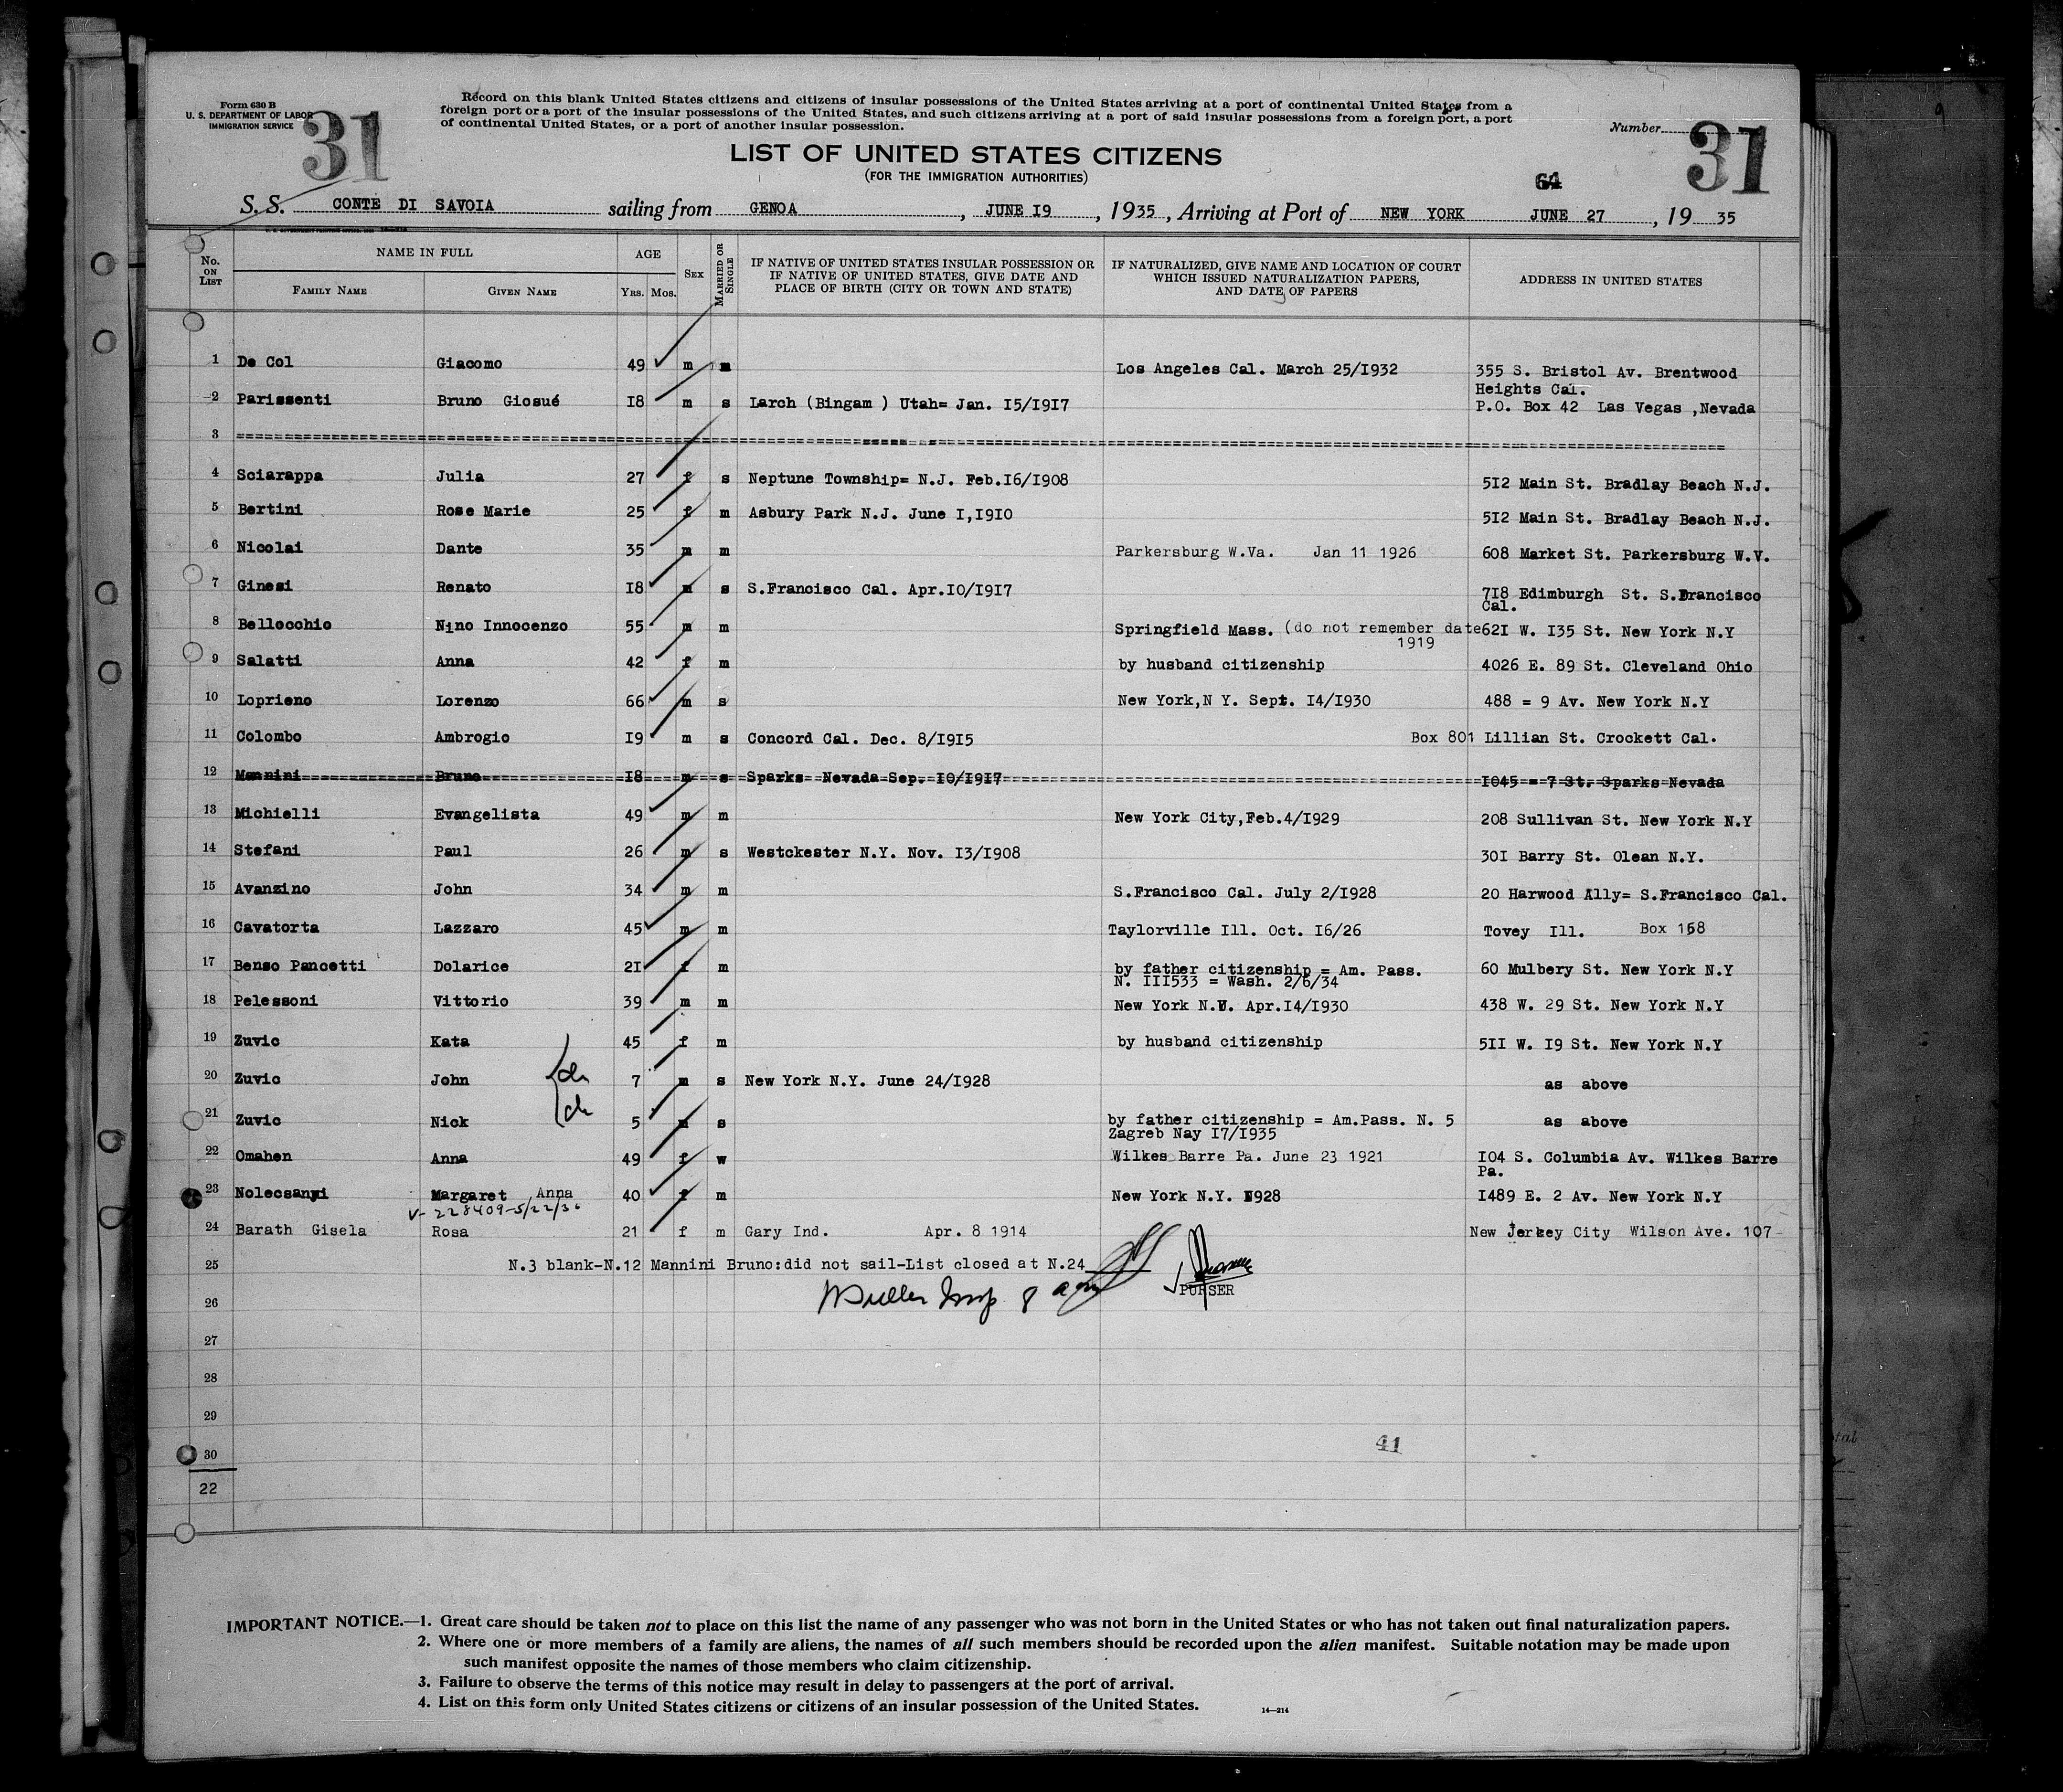 Form 630 B
U. S. DEPARTMENT OF LABOR
IMMIGRATION SERVICE
31
Record on this blank United States citizens and citizens of insular possessions of the United States arriving at a port of continental United States from a
foreign port or a port of the insular possessions of the United States, and such citizens arriving at a port of said insular possessions from a foreign port, a port
of continental United States, or a port of another insular possession.
Number 31
LIST OF UNITED STATES CITIZENS
(FOR THE IMMIGRATION AUTHORITIES)
64
S. S. CONTE DI SAVOIA sailing from GENOA, JUNE I9, 1935, Arriving at Port of NEW YORK JUNE 27, 19 35
No. ON LIST NAME IN FULL FAMILY NAME GIVEN NAME AGE YRS. MOS. SEX MARRIED OR SINGLE IF NATIVE OF UNITED STATES INSULAR POSSESSION OR IF NATIVE OF UNITED STATES, GIVE DATE AND PLACE OF BIRTH (CITY OR TOWN AND STATE) IF NATURALIZED, GIVE NAME AND LOCATION OF COURT WHICH ISSUED NATURALIZATION PAPERS, AND DATE OF PAPERS ADDRESS IN UNITED STATES
1 De Col Giacomo 49 m m Los Angeles Cal. March 25/I932 355 S. Bristol Av. Brentwood
Heights Cal.
2 Parissenti Bruno Giosué I8 m s Larch (Bingam ) Utah= Jan. I5/I9I7 P.O. Box 42 Las Vegas ,Nevada
3
4 Sciarappa Julia 27 f s Neptune Township= N.J. Feb.I6/I908 5I2 Main St. Bradlay Beach N.J.
5 Bertini Rose Marie 25 f m Asbury Park N.J. June I,I9I0 5I2 Main St. Bradlay Beach N.J.
6 Nicolai Dante 35 m m Parkersburg W.Va. Jan 11 1926 608 Market St. Parkersburg W.V.
7 Ginesi Renato I8 m s S.Francisco Cal. Apr.I0/I9I7 7I8 Edimburgh St. S.Francisco
Cal.
8 Bellocchio Nino Innocenzo 55 m m Springfield Mass. (do not remember date 62I W. I35 St. New York N.Y
1919
9 Salatti Anna 42 f m by husband citizenship 4026 E. 89 St. Cleveland Ohio
10 Loprieno Lorenzo 66 m s New York,N Y. Sept. I4/I930 488 = 9 Av. New York N.Y
11 Colombo Ambrogio I9 m s Concord Cal. Dec. 8/I9I5 Box 801 Lillian St. Crockett Cal.
12 Mannini Bruno I8 m s Sparks Nevada Sep. I0/I9I7 I045 = 7 St. Sparks Nevada
13 Michielli Evangelista 49 m m New York City,Feb.4/I929 208 Sullivan St. New York N.Y
14 Stefani Paul 26 m s Westckester N.Y. Nov. I3/I908 30I Barry St. Olean N.Y.
15 Avanzino John 34 m m S.Francisco Cal. July 2/I928 20 Harwood Ally= S.Francisco Cal.
16 Cavatorta Lazzaro 45 m m Taylorville Ill. Oct. I6/26 Tovey Ill. Box 168
17 Benso Pancetti Dolarice 2I f m by father citizenship = Am. Pass. 60 Mulbery St. New York N.Y
N. III533 = Wash. 2/6/34
18 Pelessoni Vittorio 39 m m New York N.Y. Apr.I4/I930 438 W. 29 St. New York N.Y
19 Zuvic Kata 45 f m by husband citizenship 5II W. I9 St. New York N.Y
20 Zuvic John ch 7 m s New York N.Y. June 24/I928 as above
21 Zuvic Nick ch 5 m s by father citizenship = Am.Pass. N. 5 as above
Zagreb Nay I7/I935
22 Omahen Anna 49 f w Wilkes Barre Pa. June 23 1921 I04 S. Columbia Av. Wilkes Barre
Pa.
23 Nolecsanyi Margaret Anna 40 f m New York N.Y. I928 I489 E. 2 Av. New York N.Y
V-228409-5/22/36
24 Barath Gisela Rosa 21 f m Gary Ind. Apr. 8 1914 New Jersey City Wilson Ave. 107
25 N.3 blank-N.12 Mannini Bruno:did not sail-List closed at N.24
PURSER
26
27
28
29
41
30
22
IMPORTANT NOTICE.—1. Great care should be taken not to place on this list the name of any passenger who was not born in the United States or who has not taken out final naturalization papers.
2. Where one or more members of a family are aliens, the names of all such members should be recorded upon the alien manifest. Suitable notation may be made upon
such manifest opposite the names of those members who claim citizenship.
3. Failure to observe the terms of this notice may result in delay to passengers at the port of arrival.
4. List on this form only United States citizens or citizens of an insular possession of the United States.
14—214